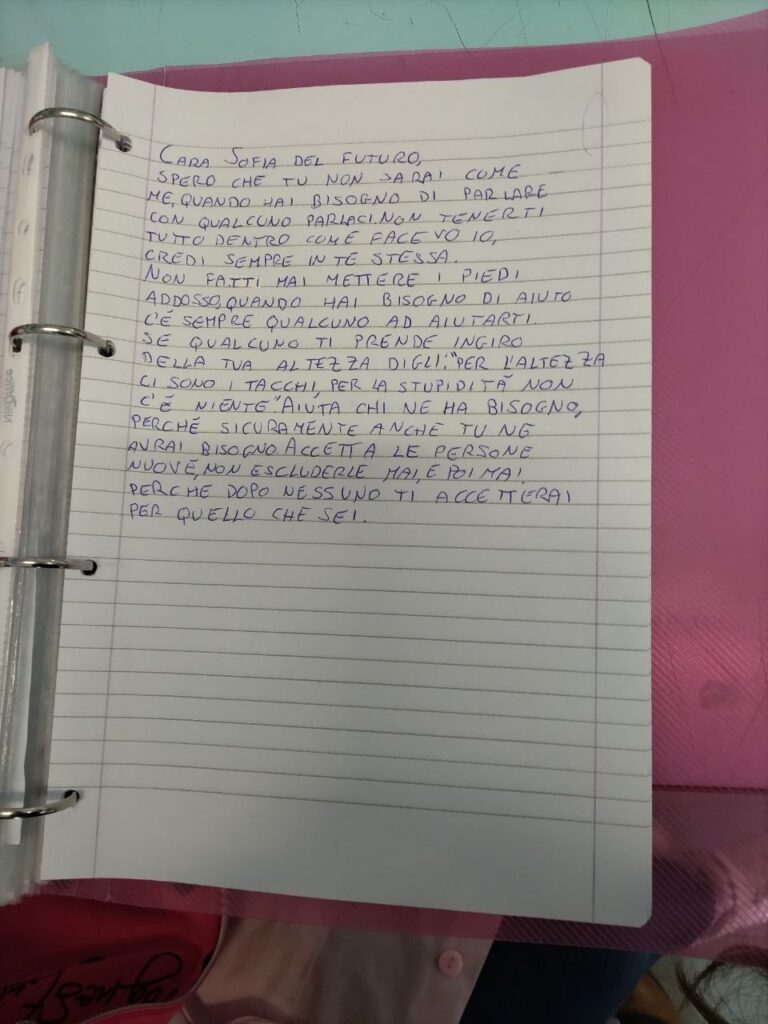 CARA SOFIA DEL FUTURO,
SPERO CHE TU NON SARAI COME
ME, QUANDO HAI BISOGNO DI PARLARE
CON QUALCUNO PARLACI. NON TENERTI
TUTTO DENTRO COME FACEVO IO,
CREDI SEMPRE IN TE STESSA.
NON FATTI MAI METTERE I PIEDI
ADDOSSO, QUANDO HAI BISOGNO DI AIUTO
C'É SEMPRE QUALCUNO AD AIUTARTI.
SE QUALCUNO TI PRENDE INGIRO
DELLA TUA ALTEZZA DIGLI: "PER L'ALTEZZA
CI SONO I TACCHI, PER LA STUPIDITÁ NON
C'É NIENTE". AIUTA CHI NE HA BISOGNO,
PERCHÉ SICURAMENTE ANCHE TU NE
AVRAI BISOGNO. ACCETTA LE PERSONE
NUOVE, NON ESCLUDERLE MAI, E POI MAI
PERCHE DOPO NESSUNO TI ACCETTERAI
PER QUELLO CHE SEI.